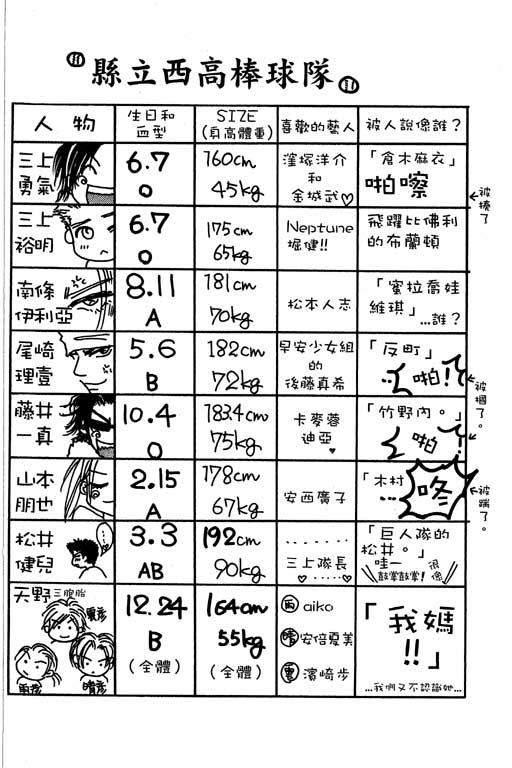 縣立西高棒球隊
人物
生日和
血型
SIZE
(身高體重)
喜歡的藝人
被人說像誰？
三上
勇氣
6.7
O
160cm
45kg
窪塚洋介
和
金城武♡
「倉木麻衣」
啪嚓
被揍了
三上
裕明
6.7
O
175cm
65kg
Neptune
堀健!!
飛躍比佛利
的布蘭頓
南條
伊利亞
8.11
A
181cm
70kg
松本人志
「蜜拉喬娃
維琪」
…誰？
尾崎
理壹
5.6
B
182cm
72kg
早安少女組
的
後藤真希
「反町」
…啪！
被摑了。
藤井
一真
10.4
O
183.4cm
75kg
卡麥蓉
迪亞♥
「竹野內。」
啪！
山本
朋也
2.15
A
178cm
67kg
安西廣子
「木村
…咚
被踹了。
松井
健兒
3.3
AB
192cm
90kg
.......
三上隊長
♡.....♡
「巨人隊的
松井。」
哇一 很像
鼓掌鼓掌!
天野 三胞胎
雪彥
雨彥
晴彥
12.24
B
(全體)
164cm
55kg
(全體)
雨 aiko
晴 安倍夏美
雪 濱崎步
「我媽
!!」
…我們又不認識她…